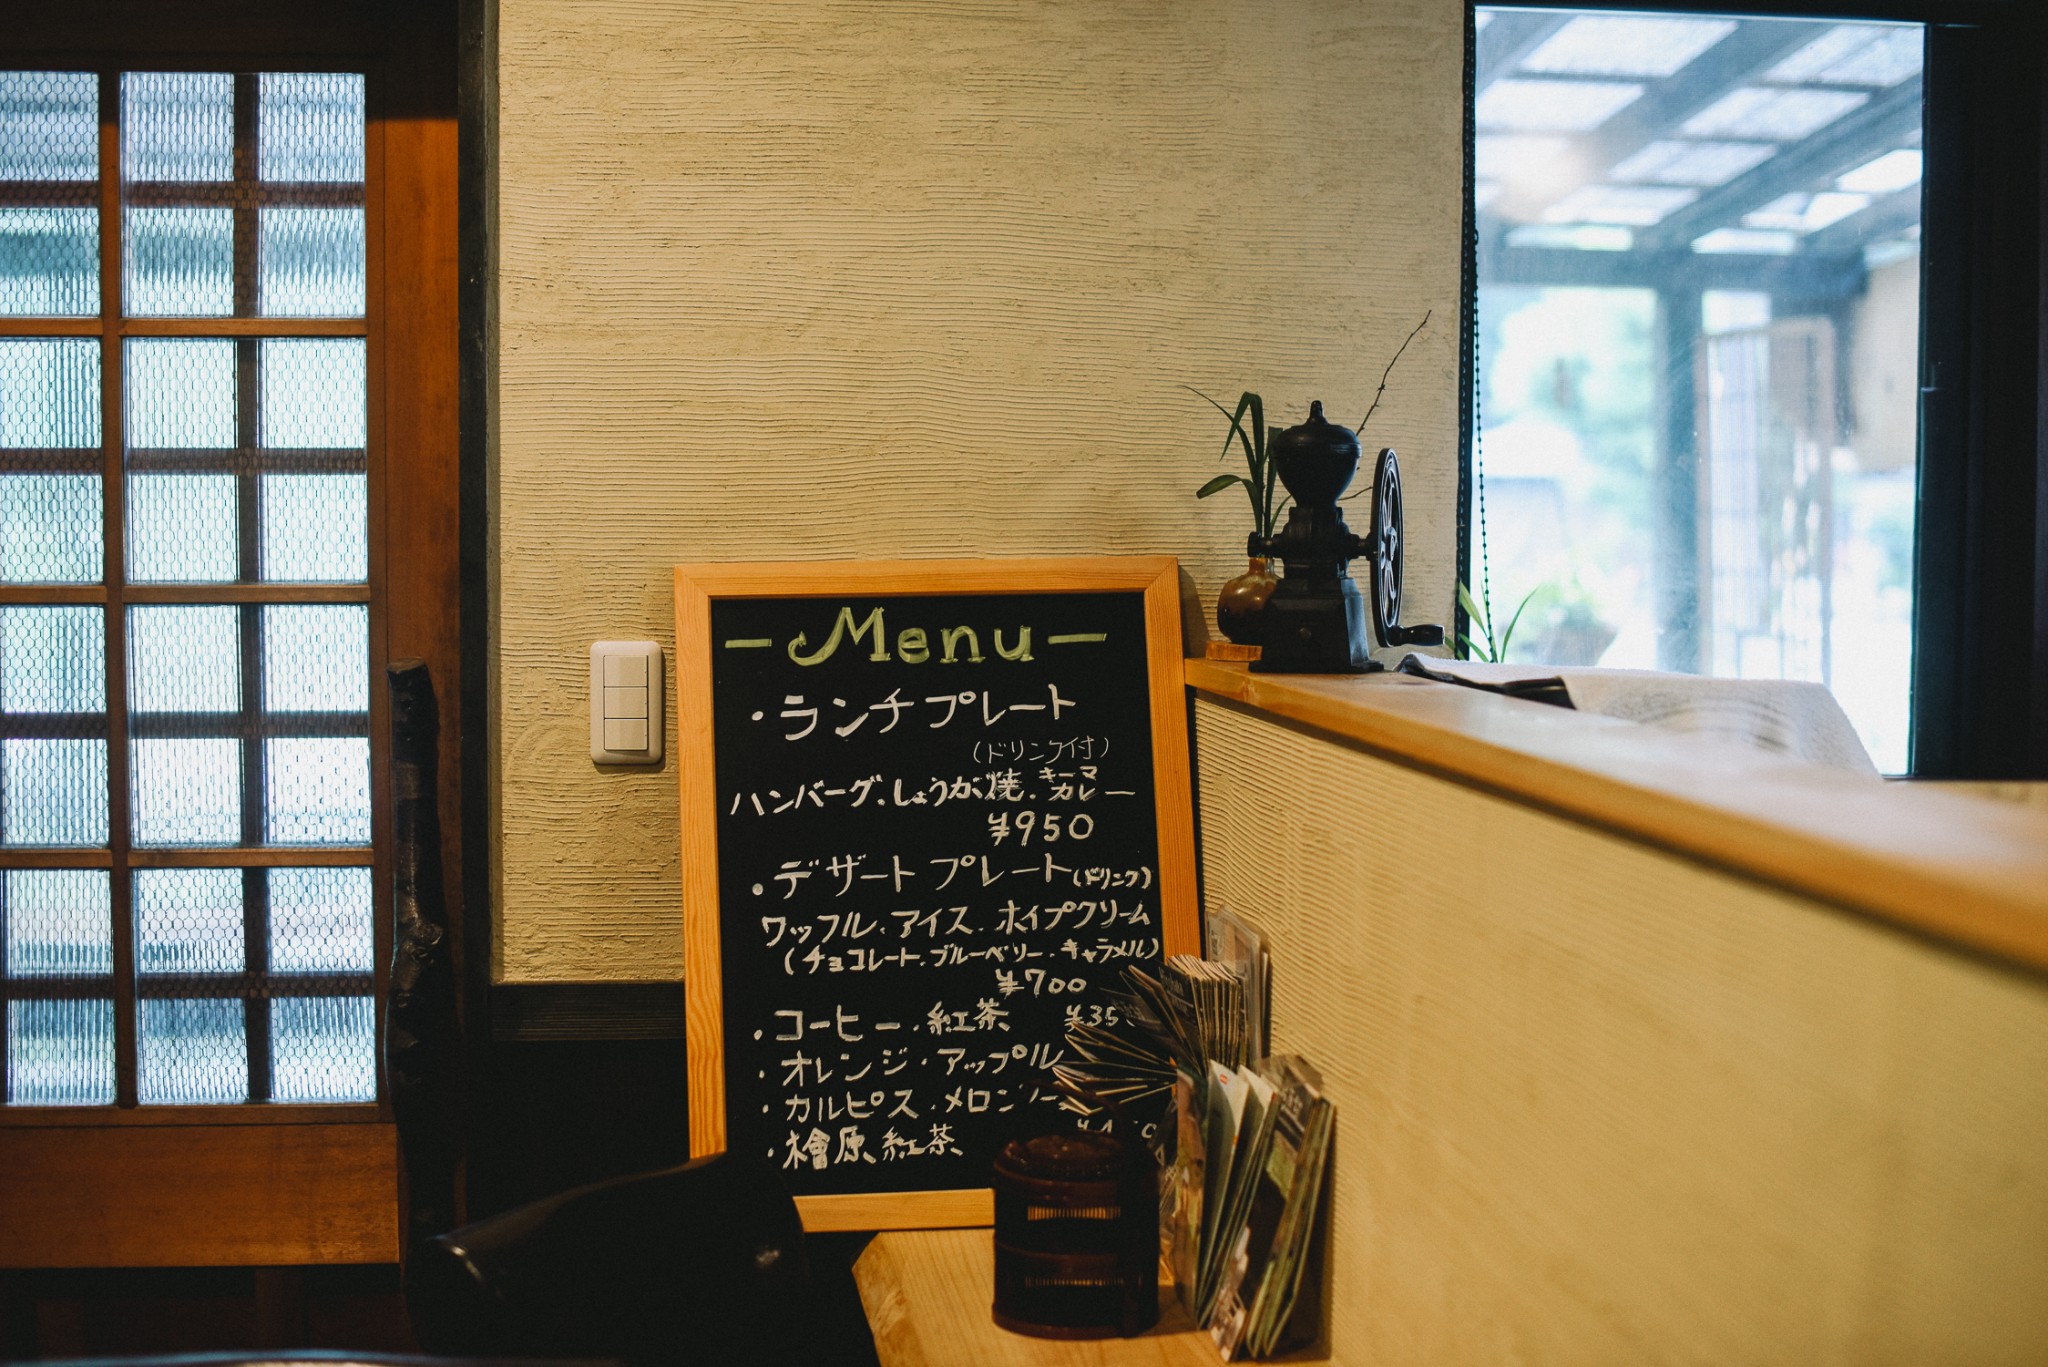 — Menu —
・ランチプレート
(ドリンク付)
ハンバーグ.しょうが焼.キーマカレー
¥950
・デザートプレート(ドリンク)
ワッフル.アイス.ホイプクリーム
(チョコレート.ブルーベリー.キャラメル)
¥700
・コーヒー.紅茶 ¥35
・オレンジ・アップル
・カルピス.メロンソー
・檜原紅茶